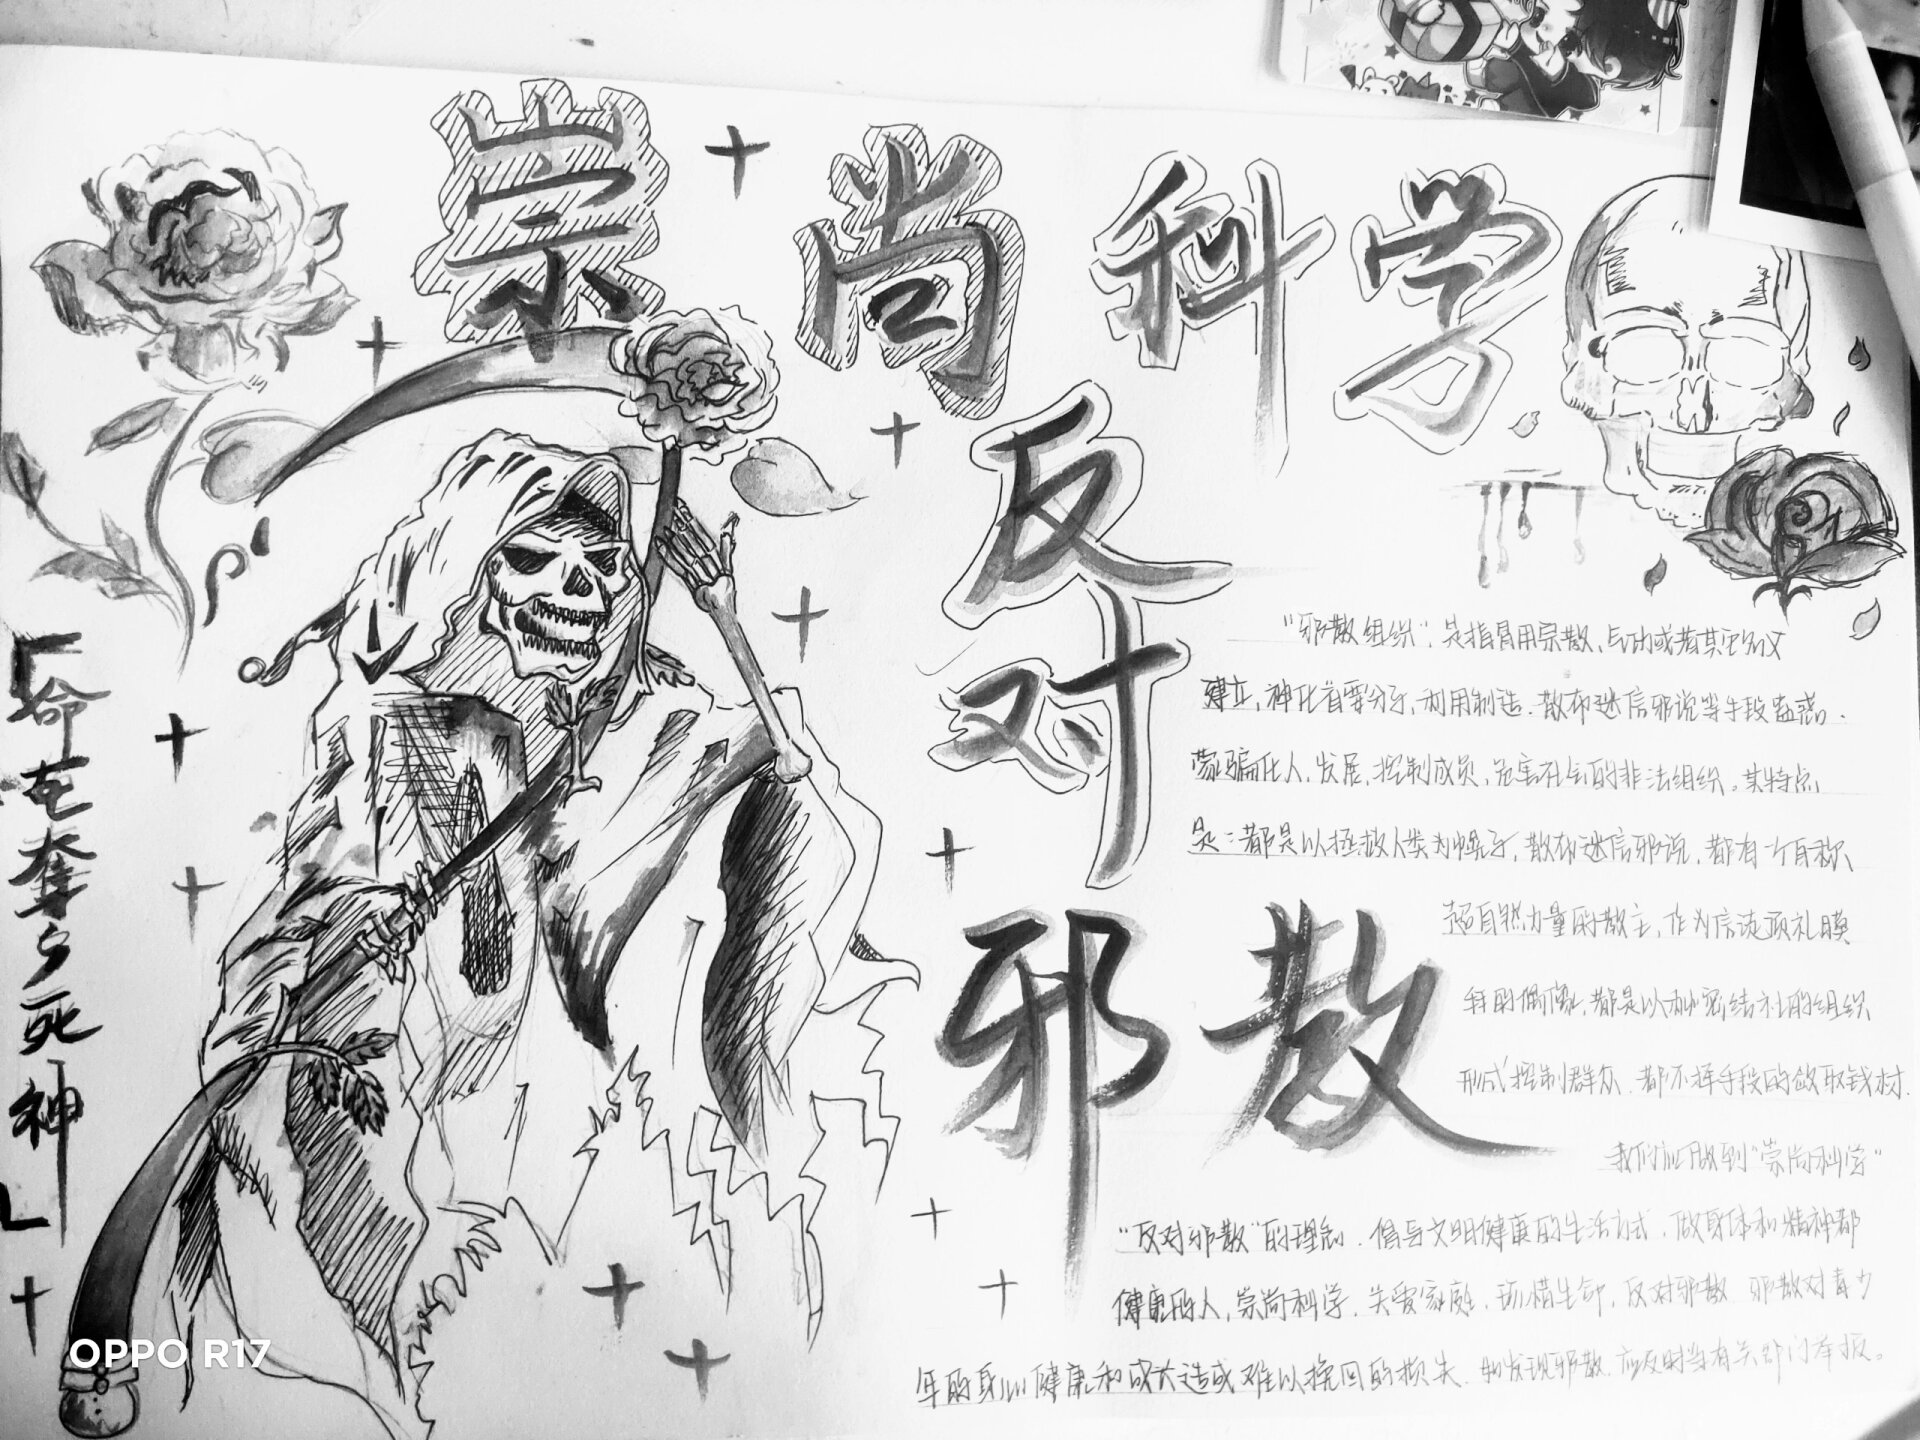 崇尚科学
反对
邪教
「命在奪与死神」
"邪教组织",是指冒用宗教、气功或者其它名义
建立,神化首要分子,利用制造、散布迷信邪说等手段蛊惑、
蒙骗他人,发展,控制成员,危害社会的非法组织。其特点
是:都是以拯救人类为幌子,散布迷信邪说,都有一个自称
超自然力量的教主,作为信徒顶礼膜
拜的偶像,都是以秘密结社的组织
形式控制群众,都不择手段的敛取钱财.
我们应做到"崇尚科学"
"反对邪教"的理念,倡导文明健康的生活方式,做身体和精神都
健康的人,崇尚科学,关爱家庭,珍惜生命,反对邪教 邪教对青少
年的身心健康和成长造成难以挽回的损失,如发现邪教,应及时当有关部门举报。
OPPO R17